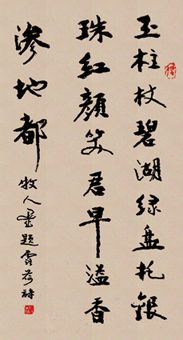 玉柱杖碧湖绿盘托银
珠红颜笑君早溢香
渗地都
牧人墨题雪荷诗